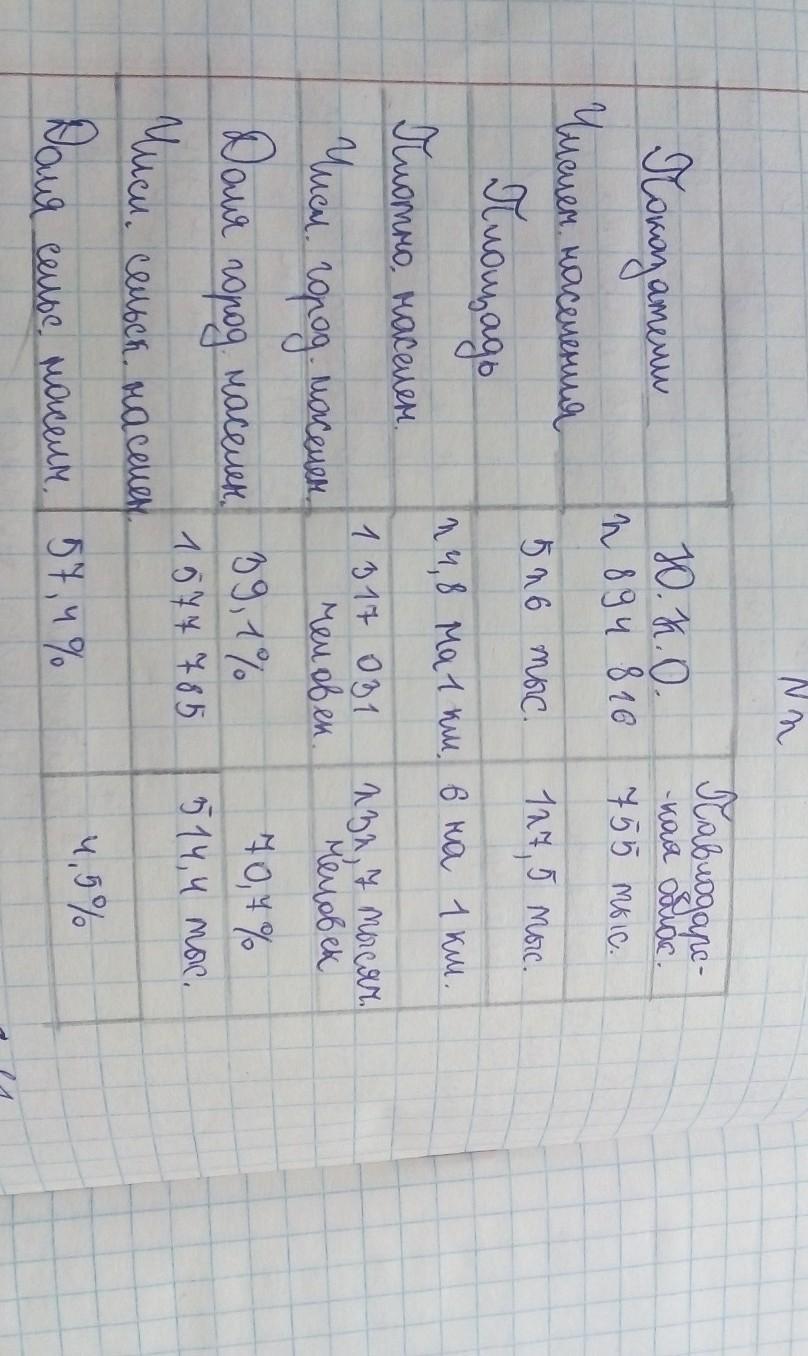 N 2
Показатели Ю.К.О. Павлодарс-
-кая облас.
Числен. населения 2 894 816 755 тыс.
Площадь 526 тыс. 127,5 тыс.
Плотно. населен. 24,8 на 1 км. 6 на 1 км.
Числ. город. населен. 1 317 031 232,7 тысяч.
человек. человек
Доля город. населен. 39,1% 70,7%
Числ. сельск. населен. 1 577 785 514,4 тыс.
Доля сельс. населн. 57,4% 4,5%